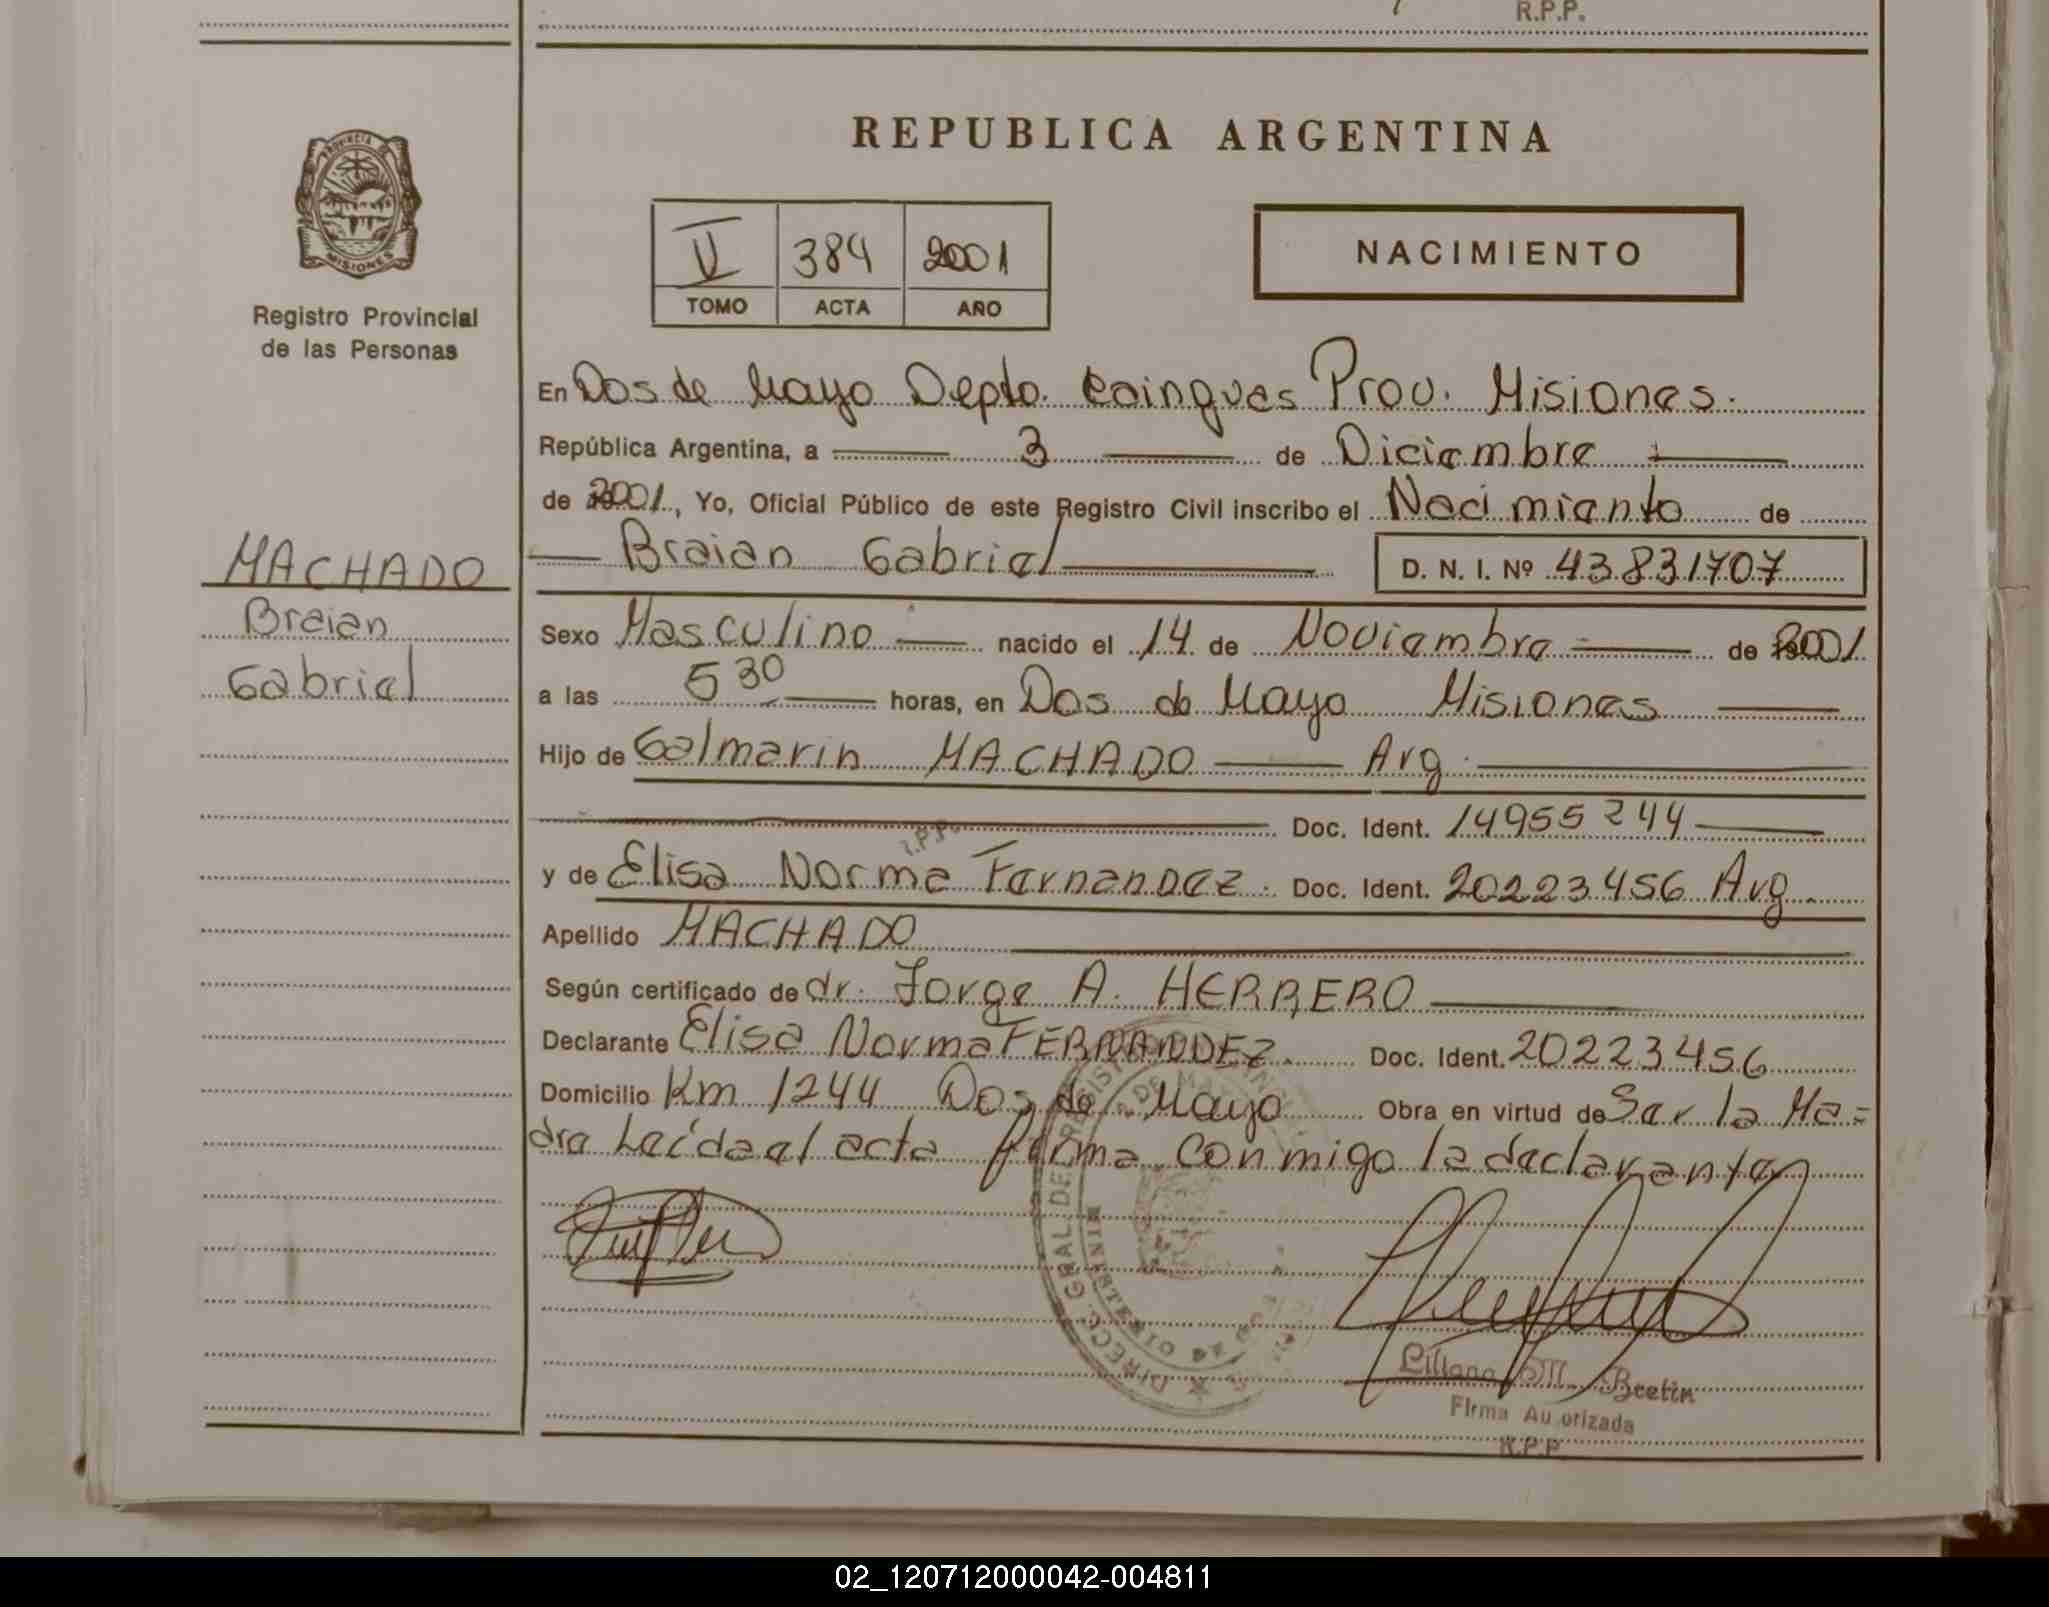 R.P.P.
REPUBLICA ARGENTINA
PROVINCIA DE
MISIONES
Registro Provincial
de las Personas
II 384 2001
TOMO ACTA AÑO
NACIMIENTO
En Dos de Mayo Depto. Cainguas Prov. Misiones.
República Argentina, a 3 de Diciembre
de 2001, Yo, Oficial Público de este Registro Civil inscribo el Nacimiento de
Braian Gabriel D. N. I. Nº 43831707
MACHADO
Braian
Gabriel
Sexo Masculino nacido el 14 de Noviembre de 2001
a las 5 30 horas, en Dos de Mayo Misiones
Hijo de Galmarin MACHADO Arg.
Doc. Ident. 14955244
R.P.P.
y de Elisa Norma Fernandez. Doc. Ident. 20223456 Arg.
Apellido MACHADO
Según certificado de dr. Jorge A. HERRERO
Declarante Elisa Norma FERNANDEZ. Doc. Ident. 20223456
Domicilio Km 1244 Dos de Mayo Obra en virtud de Ser la Ma=
dre Leída el acta firma conmigo la declarante
DIRECC. GRAL. DE REGISTRO
MINISTERIO DE
Liliana M. Breetin
Firma Autorizada
R.P.P.
02_120712000042-004811